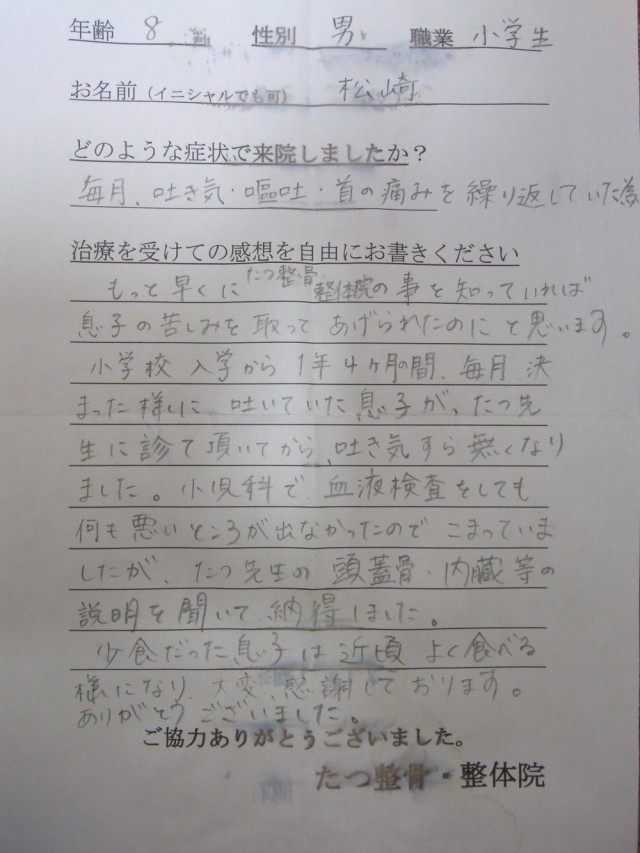 年齢 8 歳 性別 男 職業 小学生
お名前（イニシャルでも可） 松崎
どのような症状で来院しましたか？
毎月、吐き気・嘔吐・首の痛みを繰り返していた為
治療を受けての感想を自由にお書きください
もっと早くにたつ整骨整体院の事を知っていれば
息子の苦しみを取ってあげられたのにと思います。
小学校入学から1年4ヶ月の間、毎月決
まった様に吐いていた息子が、たつ先
生に診て頂いてから、吐き気すら無くなり
ました。小児科で血液検査をしても
何も悪いところが出なかったのでこまっていま
したが、たつ先生の頭蓋骨・内臓等の
説明を聞いて納得しました。
少食だった息子は近頃よく食べる
様になり、大変、感謝しております。
ありがとうございました。
ご協力ありがとうございました。
たつ整骨・整体院